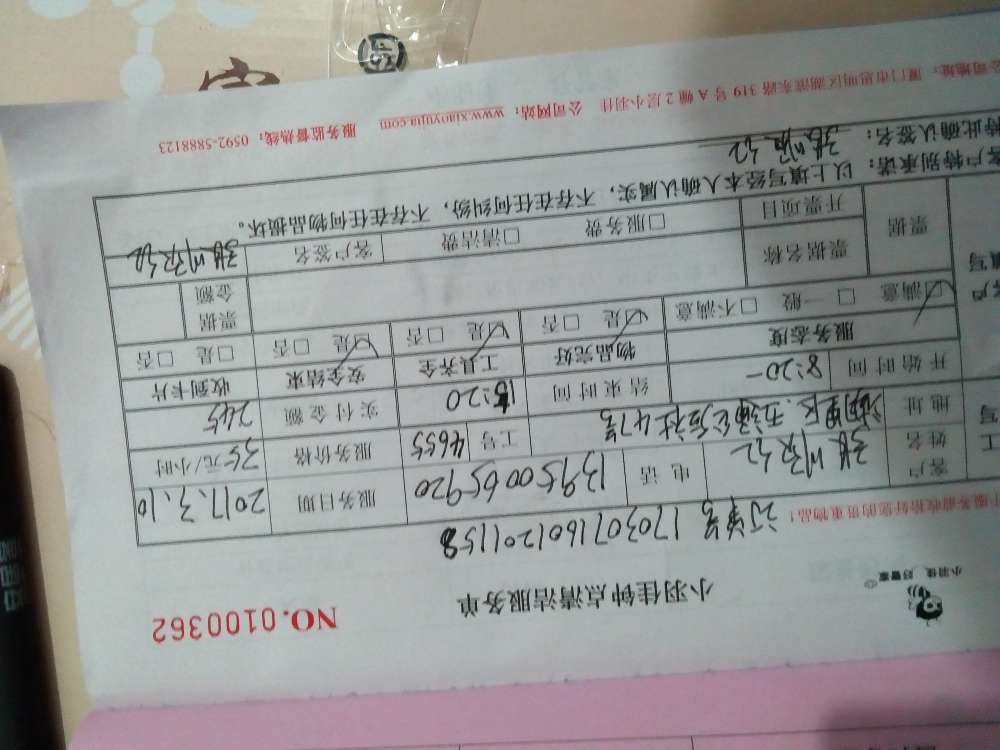 小羽佳，好管家
小羽佳钟点清洁服务单
NO.0100362
服务前收拾好您的贵重物品！
订单号 1703071601201158
客户姓名 电话 13950065920 服务日期 2017.3.10
地址 湖里区 社47号 工号 4655 服务价格 35元/小时
开始时间 8:20 结束时间 15:20 实付金额 245
服务态度 物品完好 工具齐全 安全结束 收到卡片
□满意 □一般 □不满意 □是 □否 □是 □否 □是 □否 □是 □否
票据 票据名称 票据金额
开票项目 □服务费 □清洁费 客户签名
客户特别承诺：以上填写经本人确认属实，不存在任何纠纷，不存在任何物品损坏。
特此确认签名：
公司地址：厦门市思明区湖滨东路319号A幢2层小羽佳 公司网站：www.xiaoyujia.com 服务监督热线：0592-5888123